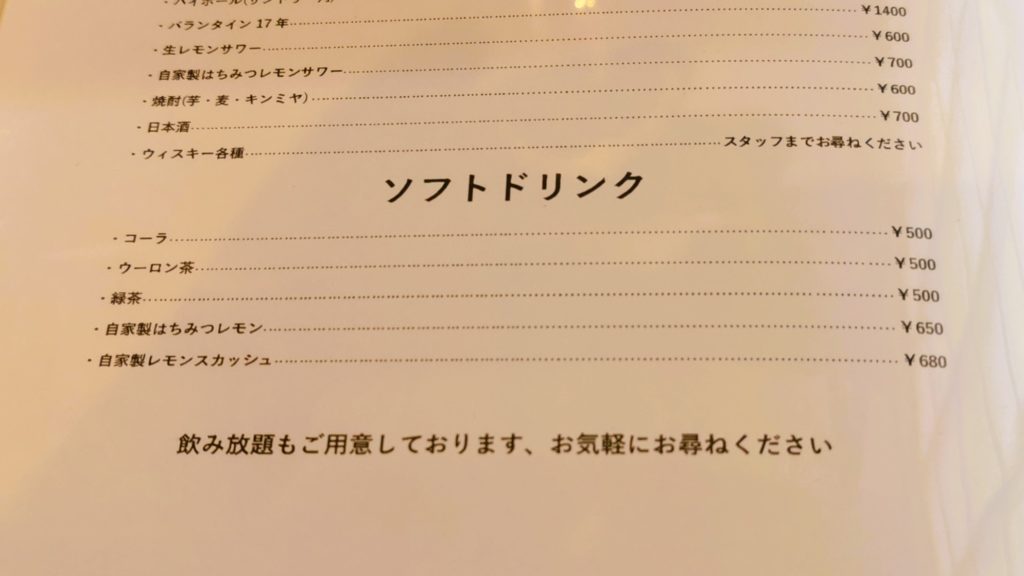 ・バランタイン 17 年 ¥1400
・生レモンサワー ¥600
・自家製はちみつレモンサワー ¥700
・焼酎(芋・麦・キンミヤ) ¥600
・日本酒 ¥700
・ウィスキー各種 スタッフまでお尋ねください
ソフトドリンク
・コーラ ¥500
・ウーロン茶 ¥500
・緑茶 ¥500
・自家製はちみつレモン ¥650
・自家製レモンスカッシュ ¥680
飲み放題もご用意しております、お気軽にお尋ねください